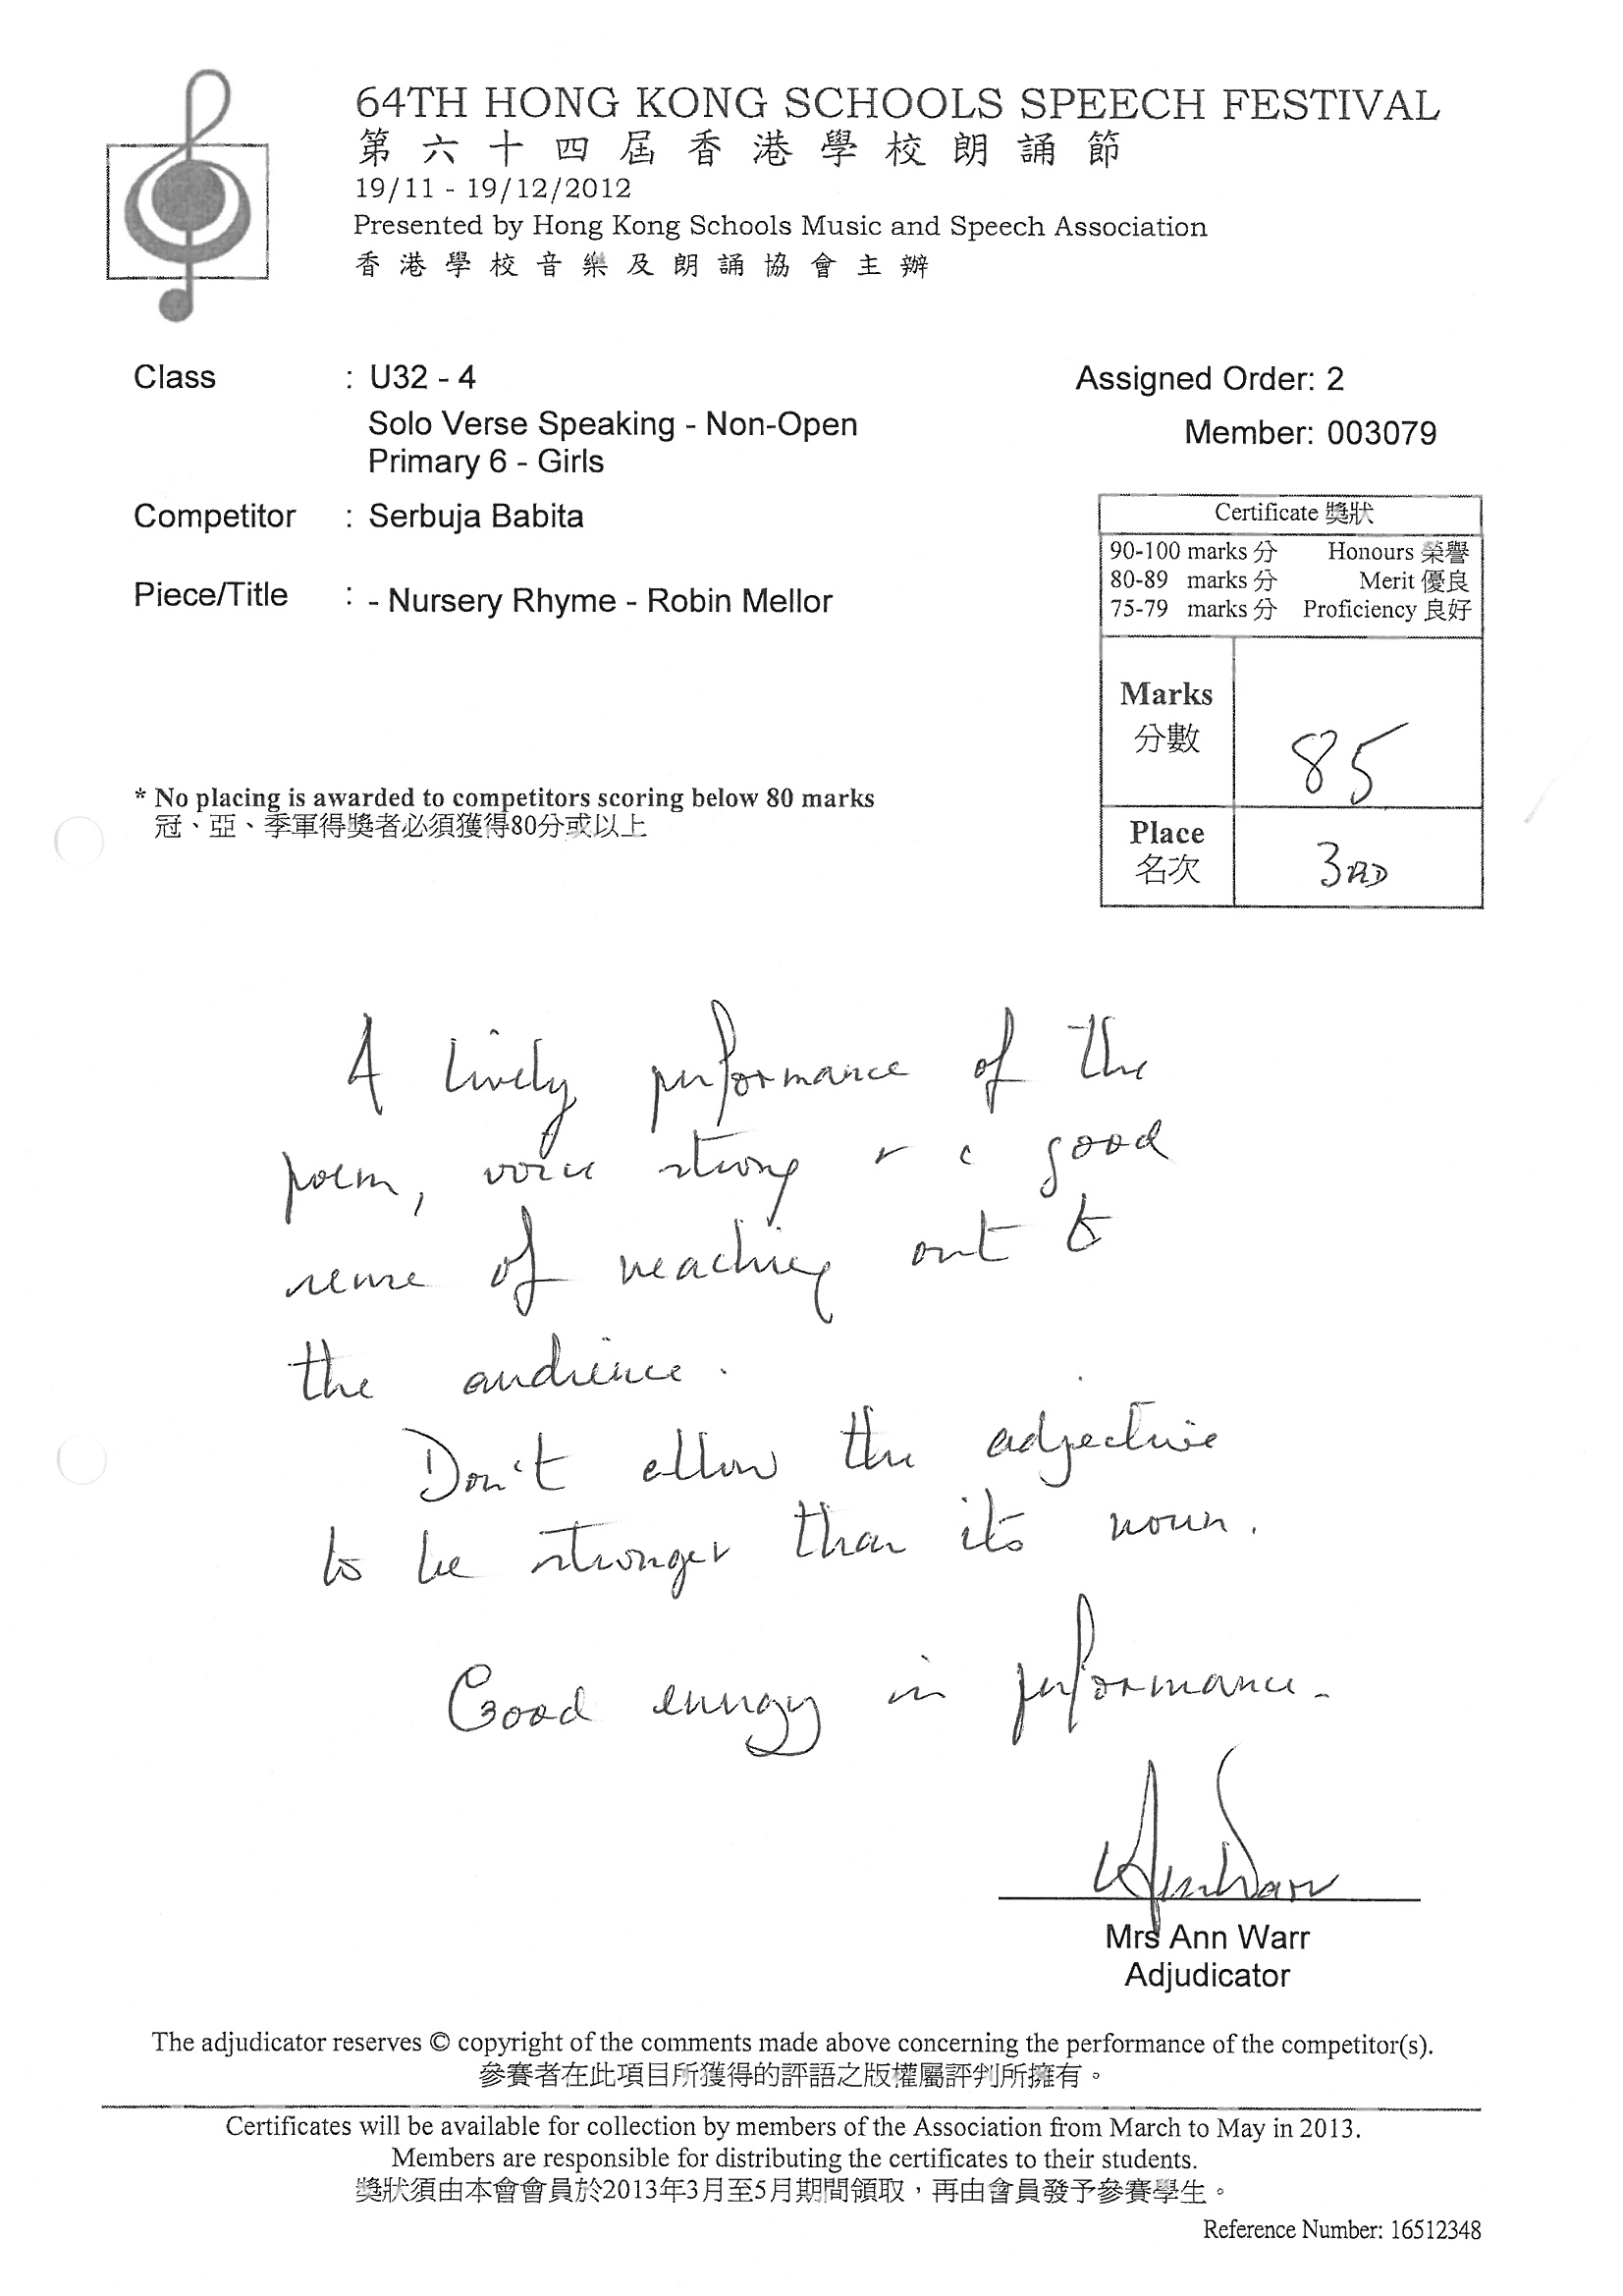 64TH HONG KONG SCHOOLS SPEECH FESTIVAL
第六十四屆香港學校朗誦節
19/11 - 19/12/2012
Presented by Hong Kong Schools Music and Speech Association
香港學校音樂及朗誦協會主辦
Class : U32 - 4
Assigned Order: 2
Solo Verse Speaking - Non-Open
Member: 003079
Primary 6 - Girls
Competitor : Serbuja Babita
Piece/Title : - Nursery Rhyme - Robin Mellor
Certificate 獎狀
90-100 marks 分 Honours 榮譽
80-89 marks 分 Merit 優良
75-79 marks 分 Proficiency 良好
Marks
分數
85
Place
名次
3RD
* No placing is awarded to competitors scoring below 80 marks
冠、亞、季軍得獎者必須獲得80分或以上
A lively performance of the
poem, voice strong + a good
sense of reaching out to
the audience.
Don't allow the adjective
to be stronger than its noun.
Good energy in performance.
Ann Warr
Mrs Ann Warr
Adjudicator
The adjudicator reserves © copyright of the comments made above concerning the performance of the competitor(s).
參賽者在此項目所獲得的評語之版權屬評判所擁有。
Certificates will be available for collection by members of the Association from March to May in 2013.
Members are responsible for distributing the certificates to their students.
獎狀須由本會會員於2013年3月至5月期間領取，再由會員發予參賽學生。
Reference Number: 16512348